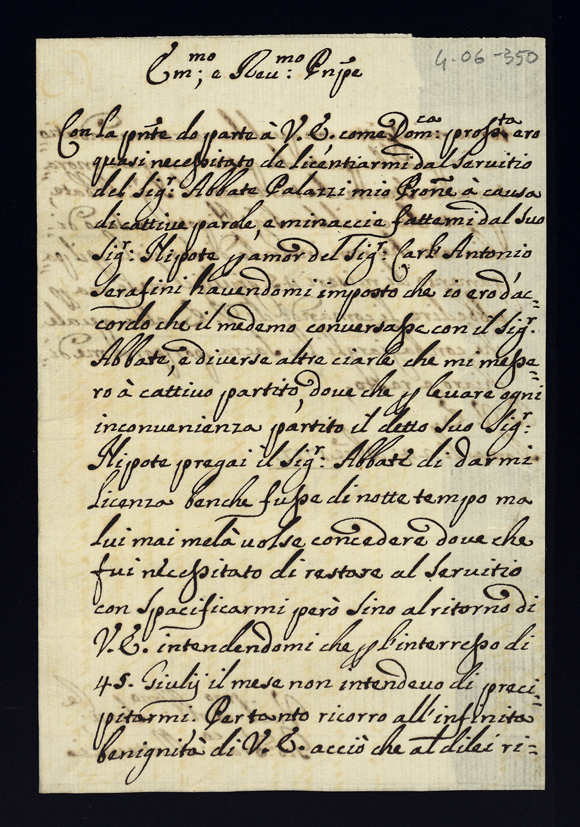 4-06-350
Em:mo; e Reu:mo Pnpe
Con la pnte do parte à V. E. come Dom:ca prossta ero
quasi necessitato de licentiarmi dal Seruitio
del Sigr: Abbate Palazzi mio Prone à causa
di cattiue parole, e minaccie fattemi dal suo
Sigr: Nipote p amor del Sigr: Carlo Antonio
Serafini hauendomi imposto che io ero d'ac=
cordo che il medemo conuersasse con il Sigr:
Abbate, e diuerse altre ciarle che mi messe=
ro à cattiuo partito, doue che p leuare ogni
inconuenienza, partito il detto suo Sigr:
Nipote pregai il Sigr: Abbate di darmi
licenza benche fusse di notte tempo ma
lui mai me là uolse concedere doue che
fui necessitato di restare al seruitio
con spacificarmi però sino al ritorno di
V. E. intendendomi che p l'interesso di
45. Giulij il mese non intendeuo di preci=
pitarmi. Pertanto ricorro all'infinita
benignità di V. E. acciò che al di lei ri=